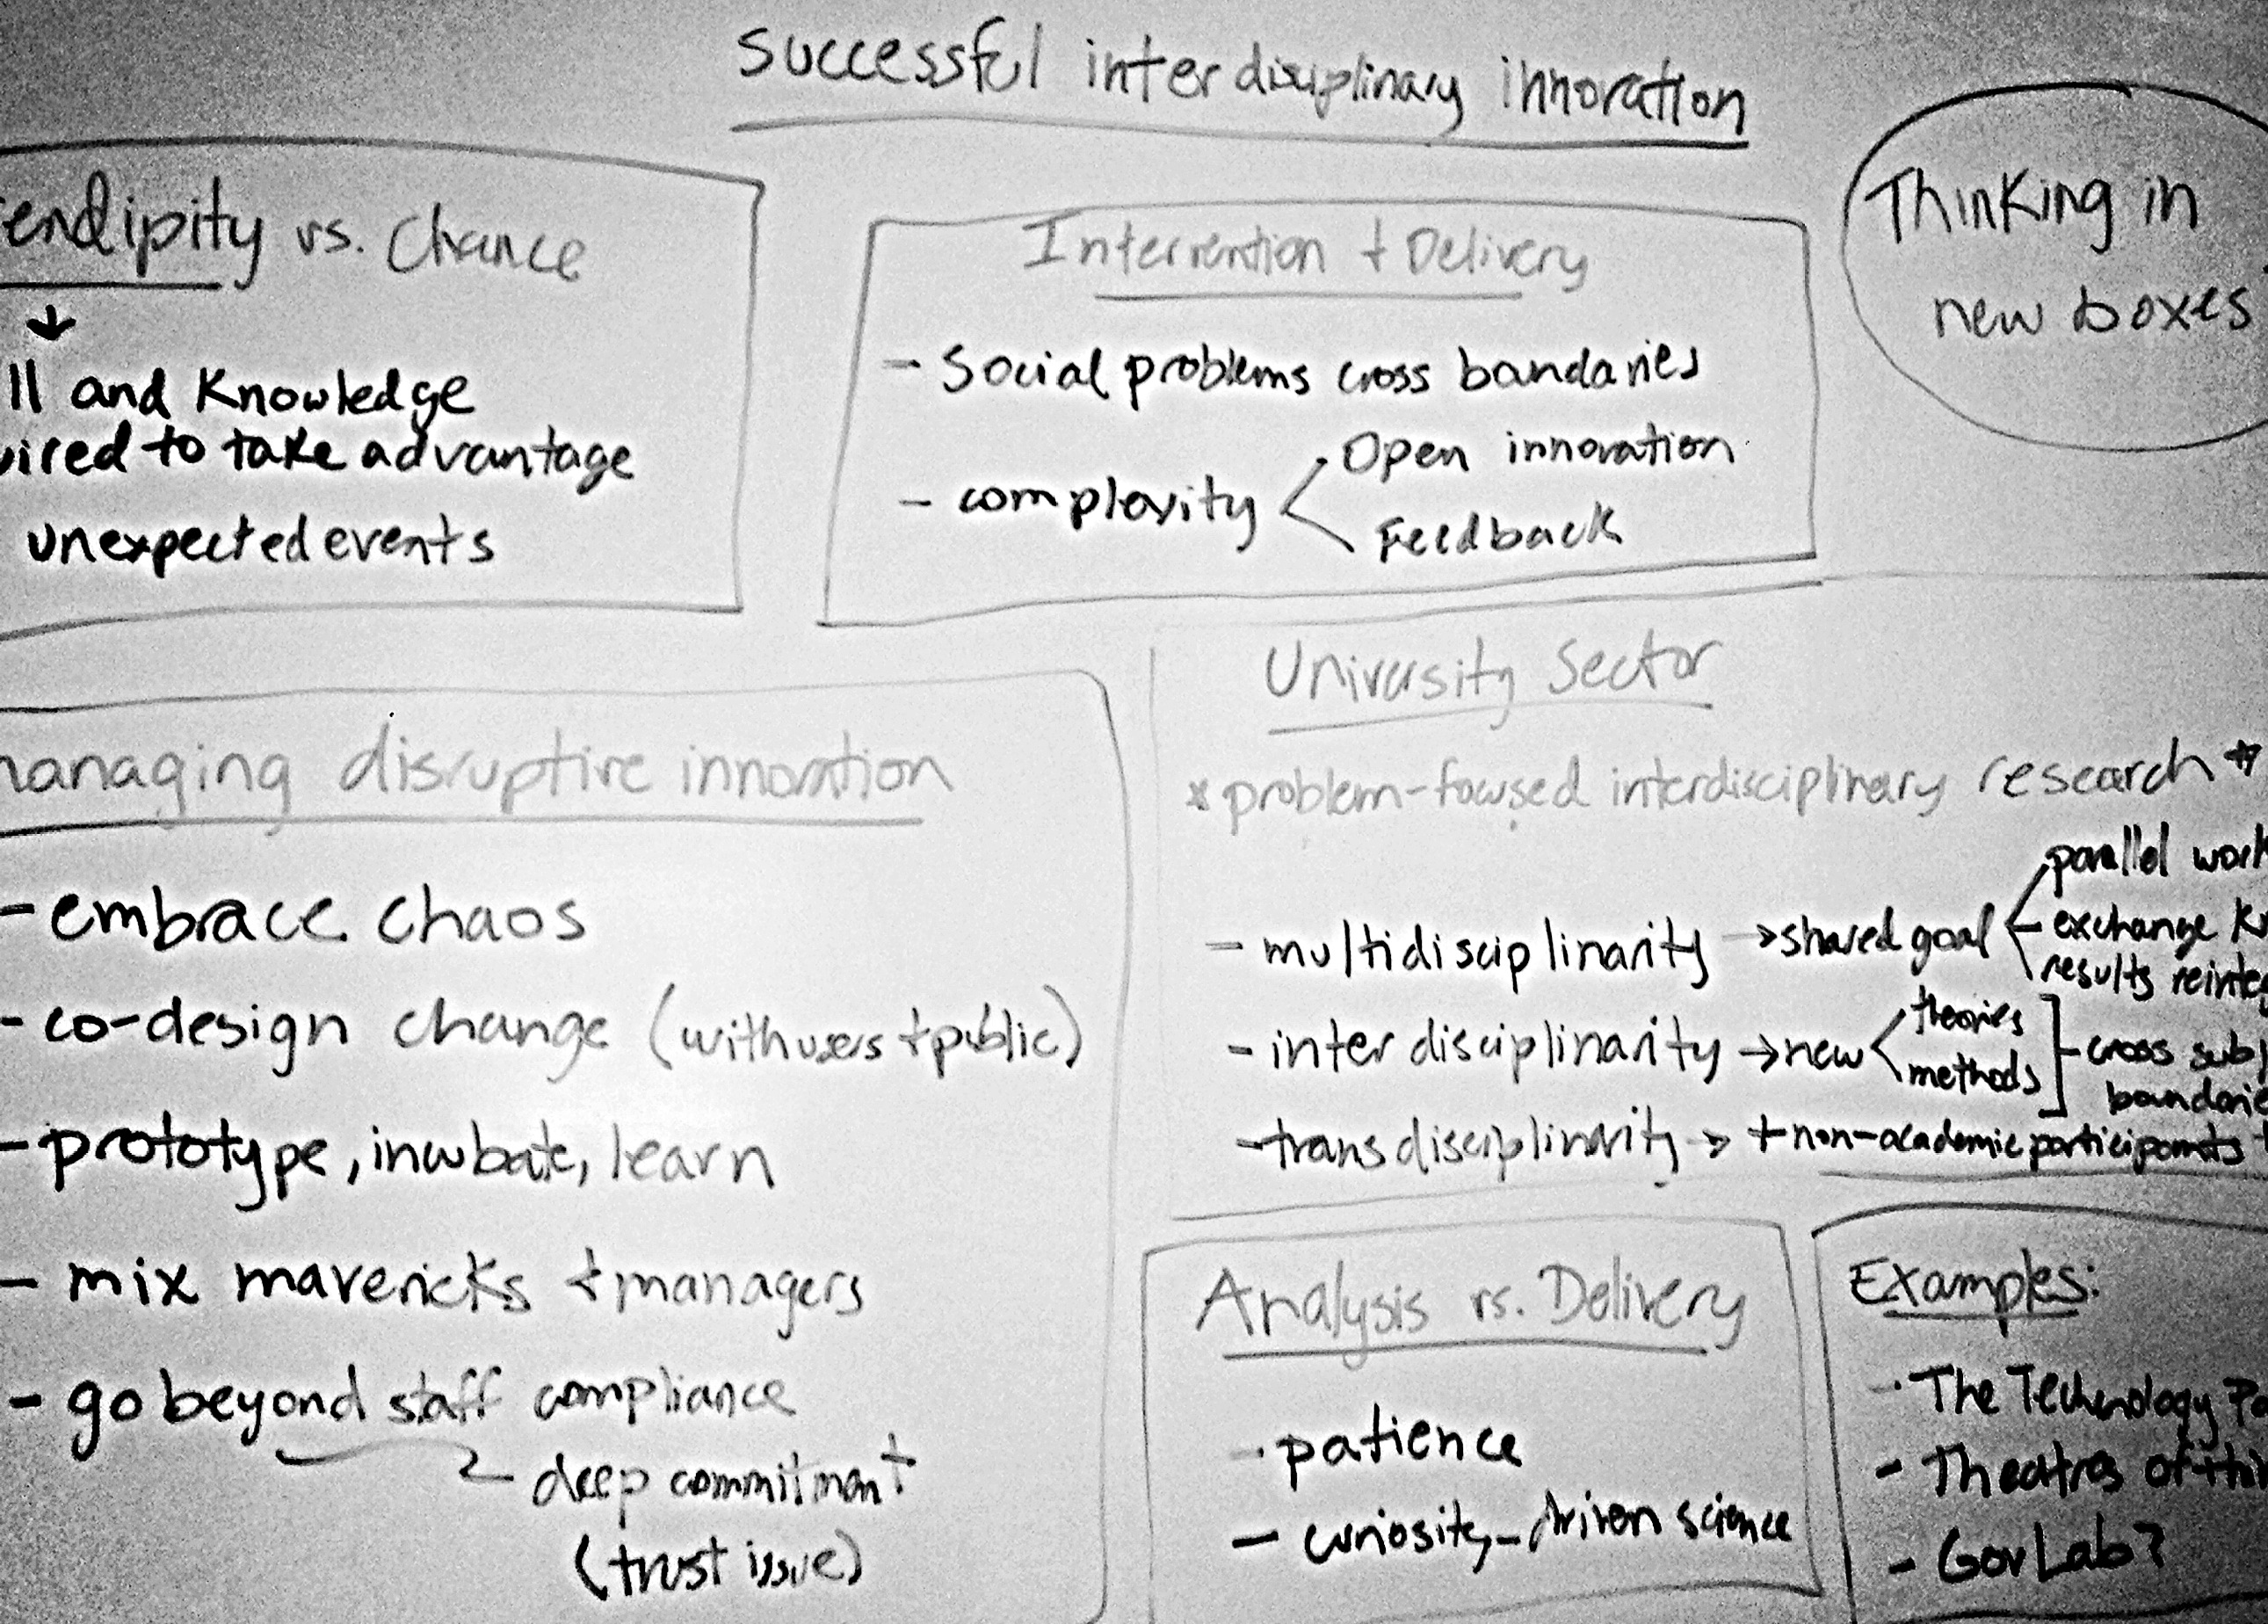 Successful interdisciplinary innovation
endipity vs. Chance
ll and Knowledge
ired to take advantage
unexpected events
Intervention + Delivery
- Social problems cross bandaries
- complexity Open innovation
Feedback
Thinking in
new boxes
managing disruptive innovation
- embrace chaos
- co-design change (with users + public)
- prototype, incubate, learn
- mix mavericks + managers
- go beyond staff compliance
deep commitment
(trust issue)
University Sector
* problem-focused interdisciplinary research *
- multidisciplinarity → shared goal
parallel work
exchange
results
- interdisciplinarity → new
theories
methods
cross
- transdisciplinarity → + non-academic participants
Analysis vs. Delivery
- patience
- curiosity-driven science
Examples:
- The Technology
- Theatres of
- GovLab?